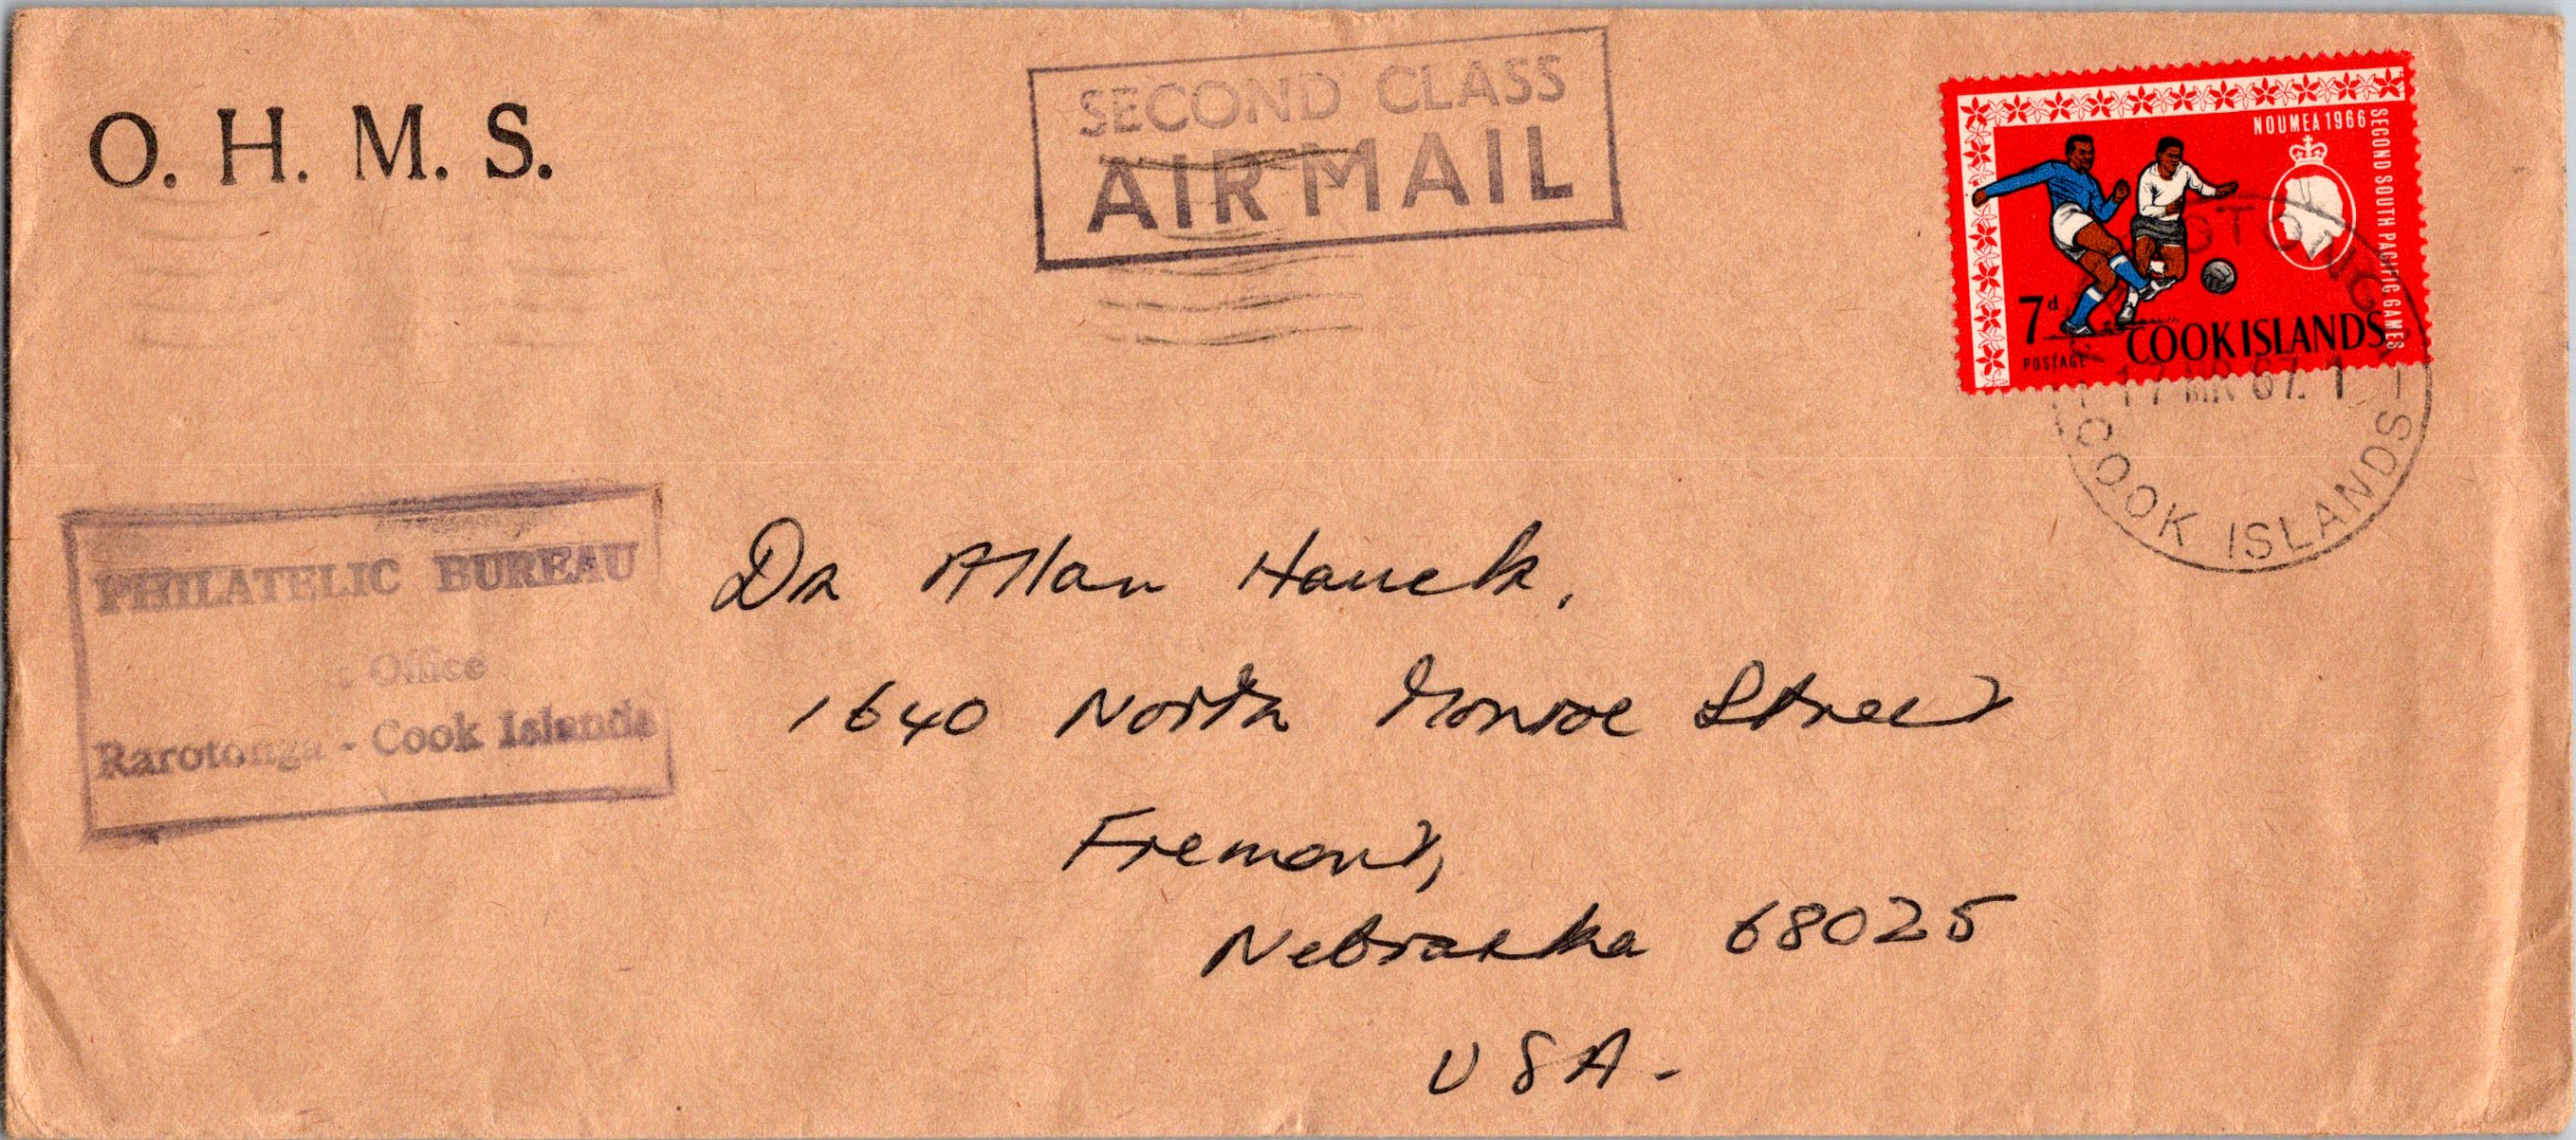 O. H. M. S.
SECOND CLASS
AIR MAIL
NOUMEA 1966
SECOND SOUTH PACIFIC GAMES
7d
POSTAGE
COOK ISLANDS
67. 1
COOK ISLANDS
PHILATELIC BUREAU
Office
Rarotonga - Cook Islands
Dr Allan Hauck,
1640 North Monroe Street
Fremont,
Nebraska 68025
USA-